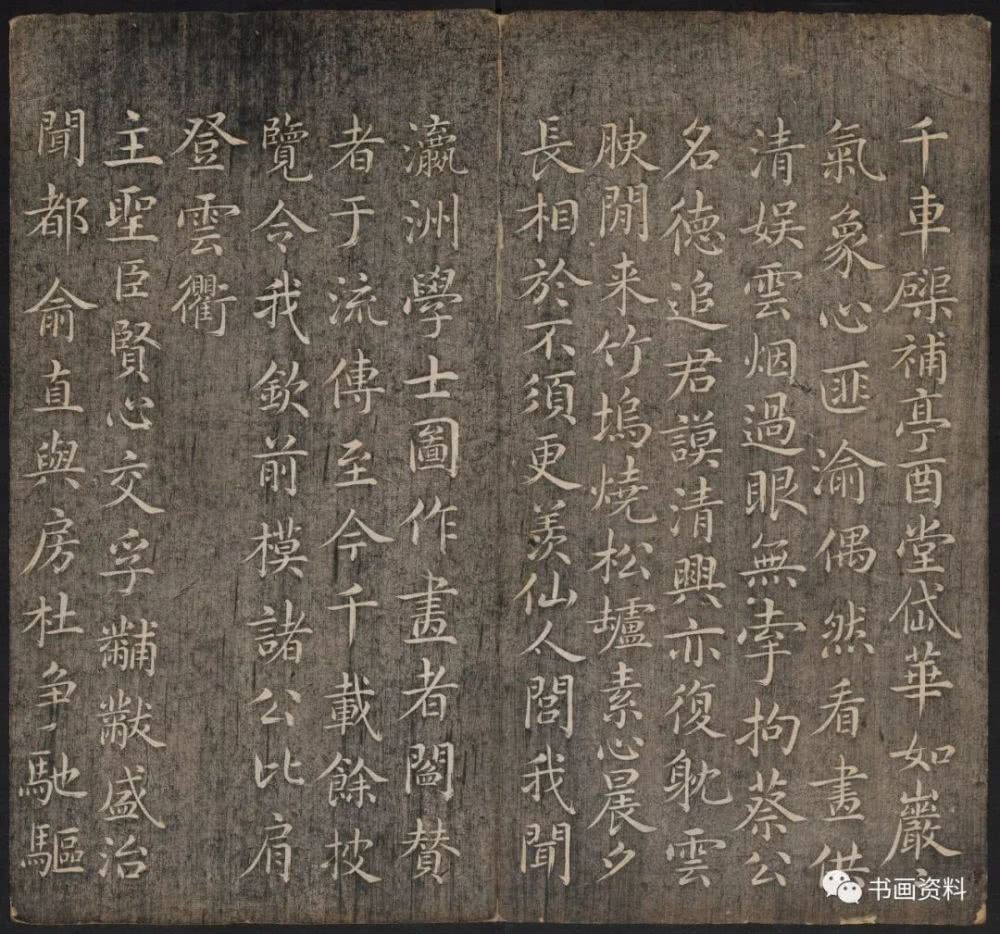 千車礐補亭酉堂岱華如巖々
氣象心匪渝偶然看畫供
清娱雲烟過眼無牽拘蔡公
名德追君謨清興亦復躭雲
腴閒来竹塢燒松壚素心晨夕
長相於不須更羡仙人閭我聞
瀛洲學士圖作畫者閻賛
者于流傳至今千載餘披
覽令我欽前模諸公比肩
登雲衢
主聖臣賢心交孚黼黻盛治
聞都俞直與房杜争馳驅
书画资料